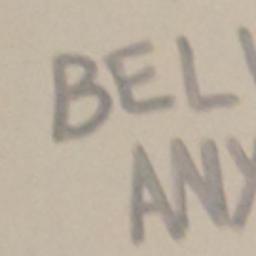 BEL
ANY